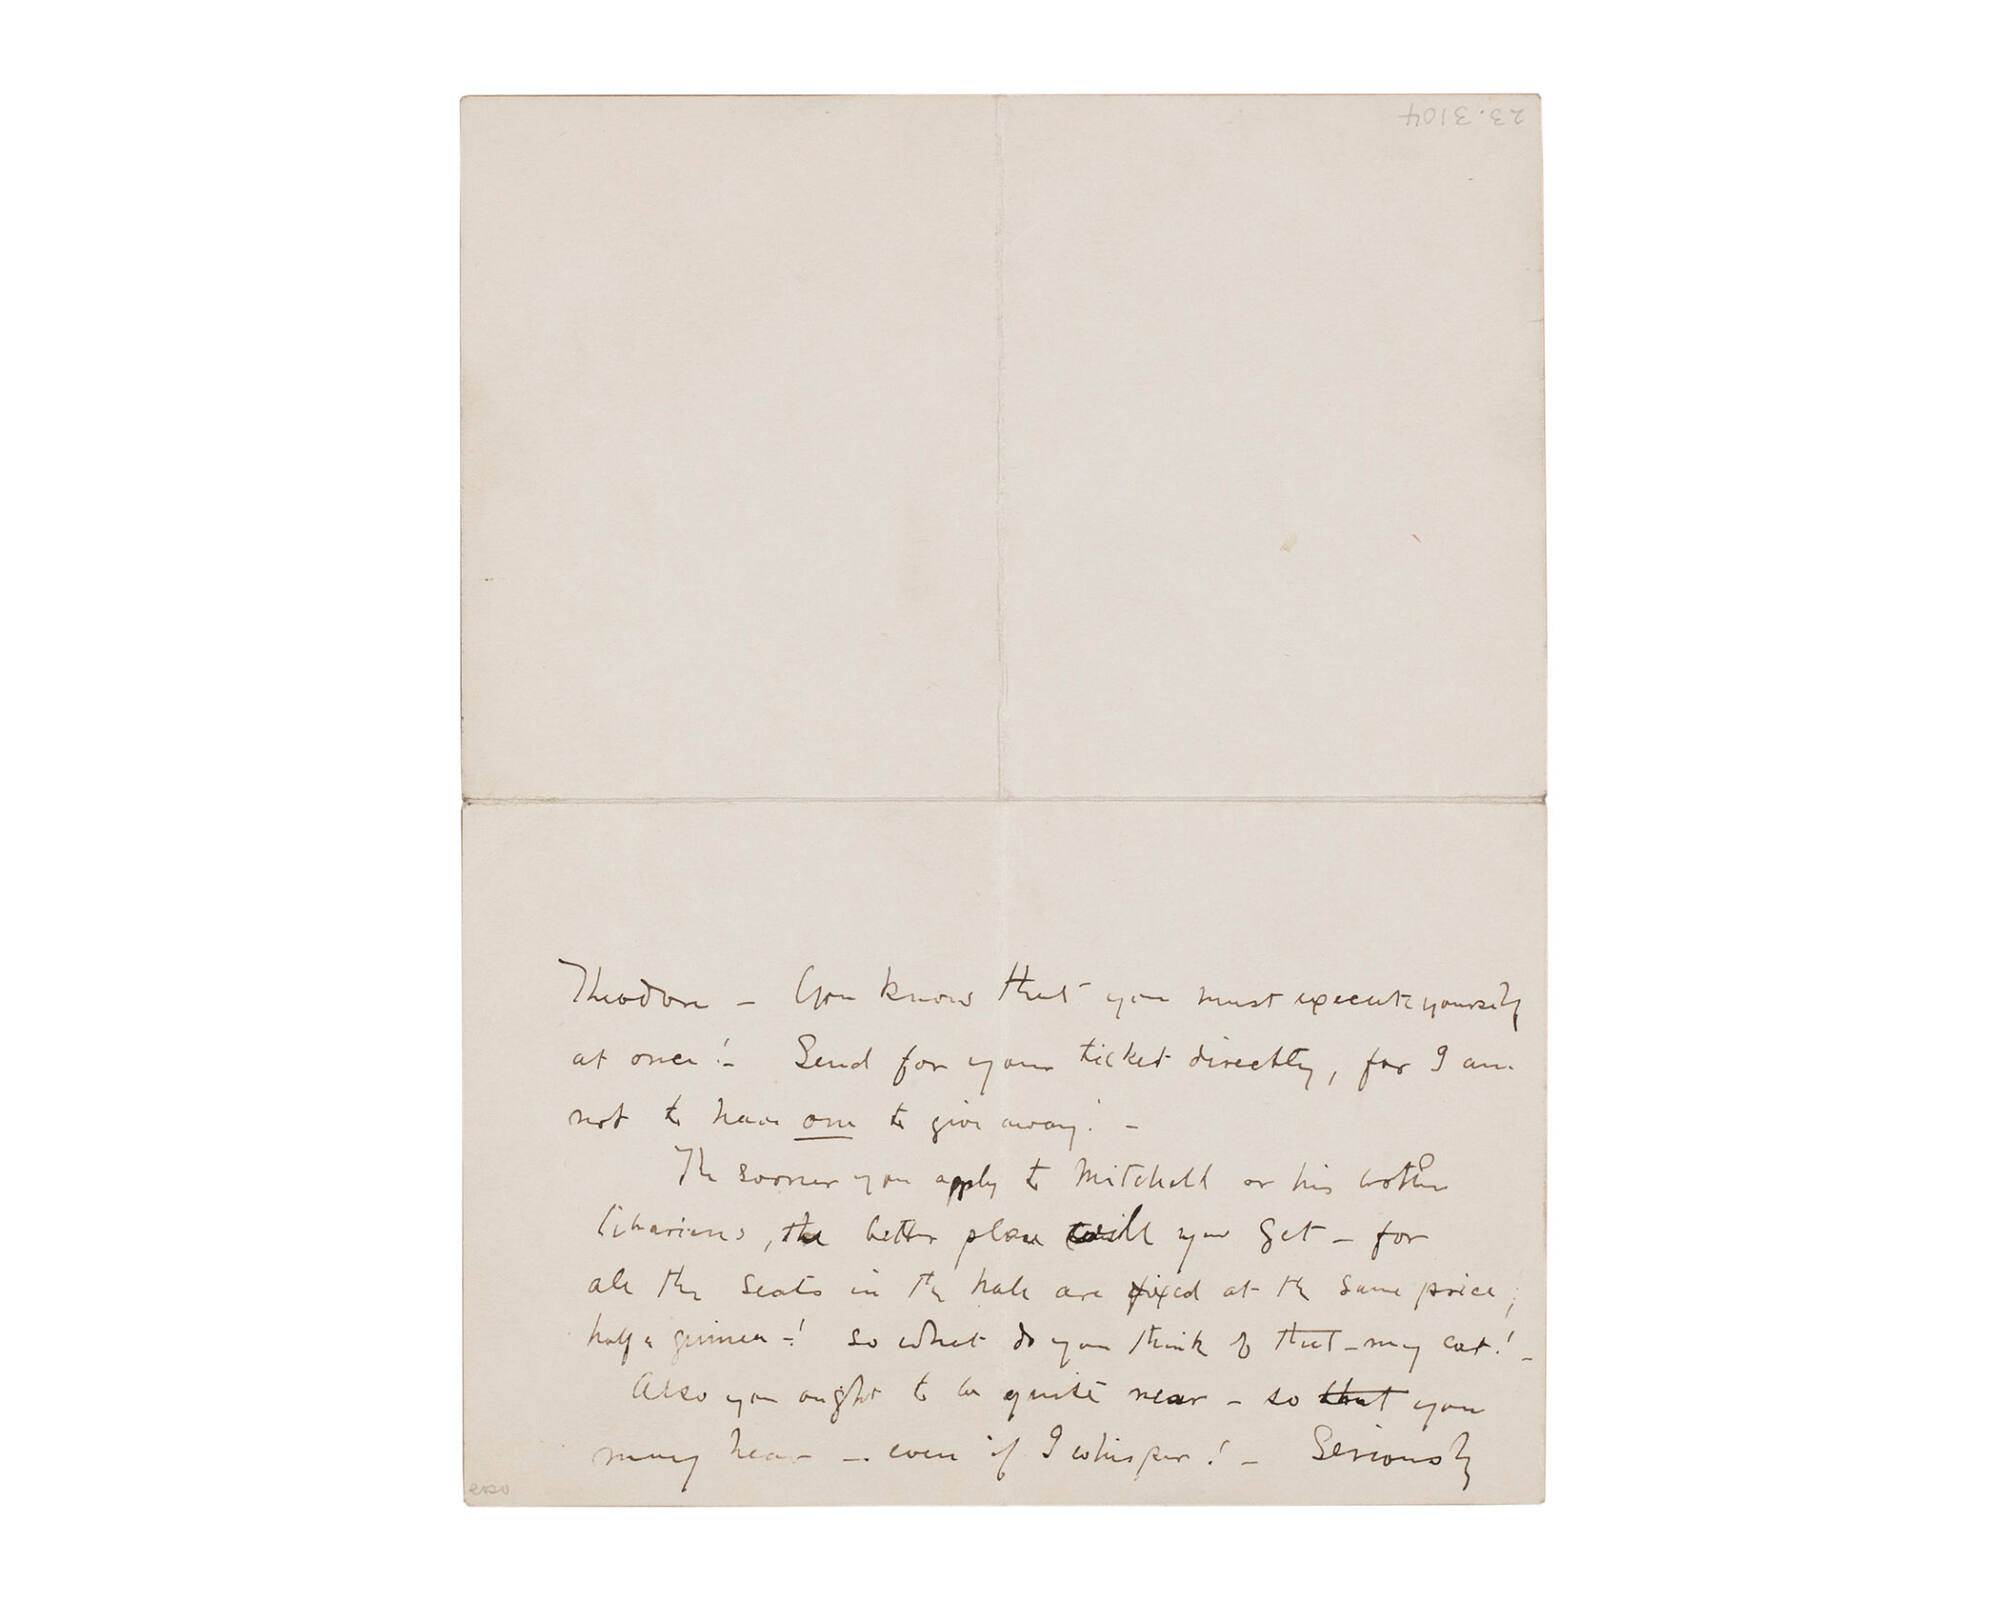 23.3104
Theodore – You know that you must execute yourself
at once! – Send for your ticket directly, for I am
not to have one to give away! –
The sooner you apply to Mitchell or his brother
librarians, the better place will you get – for
all the seats in the hall are fixed at the same price;
half a guinea –! so what do you think of that – my cat! –
Also you ought to be quite near – so that you
may hear – . even if I whisper! – Seriously